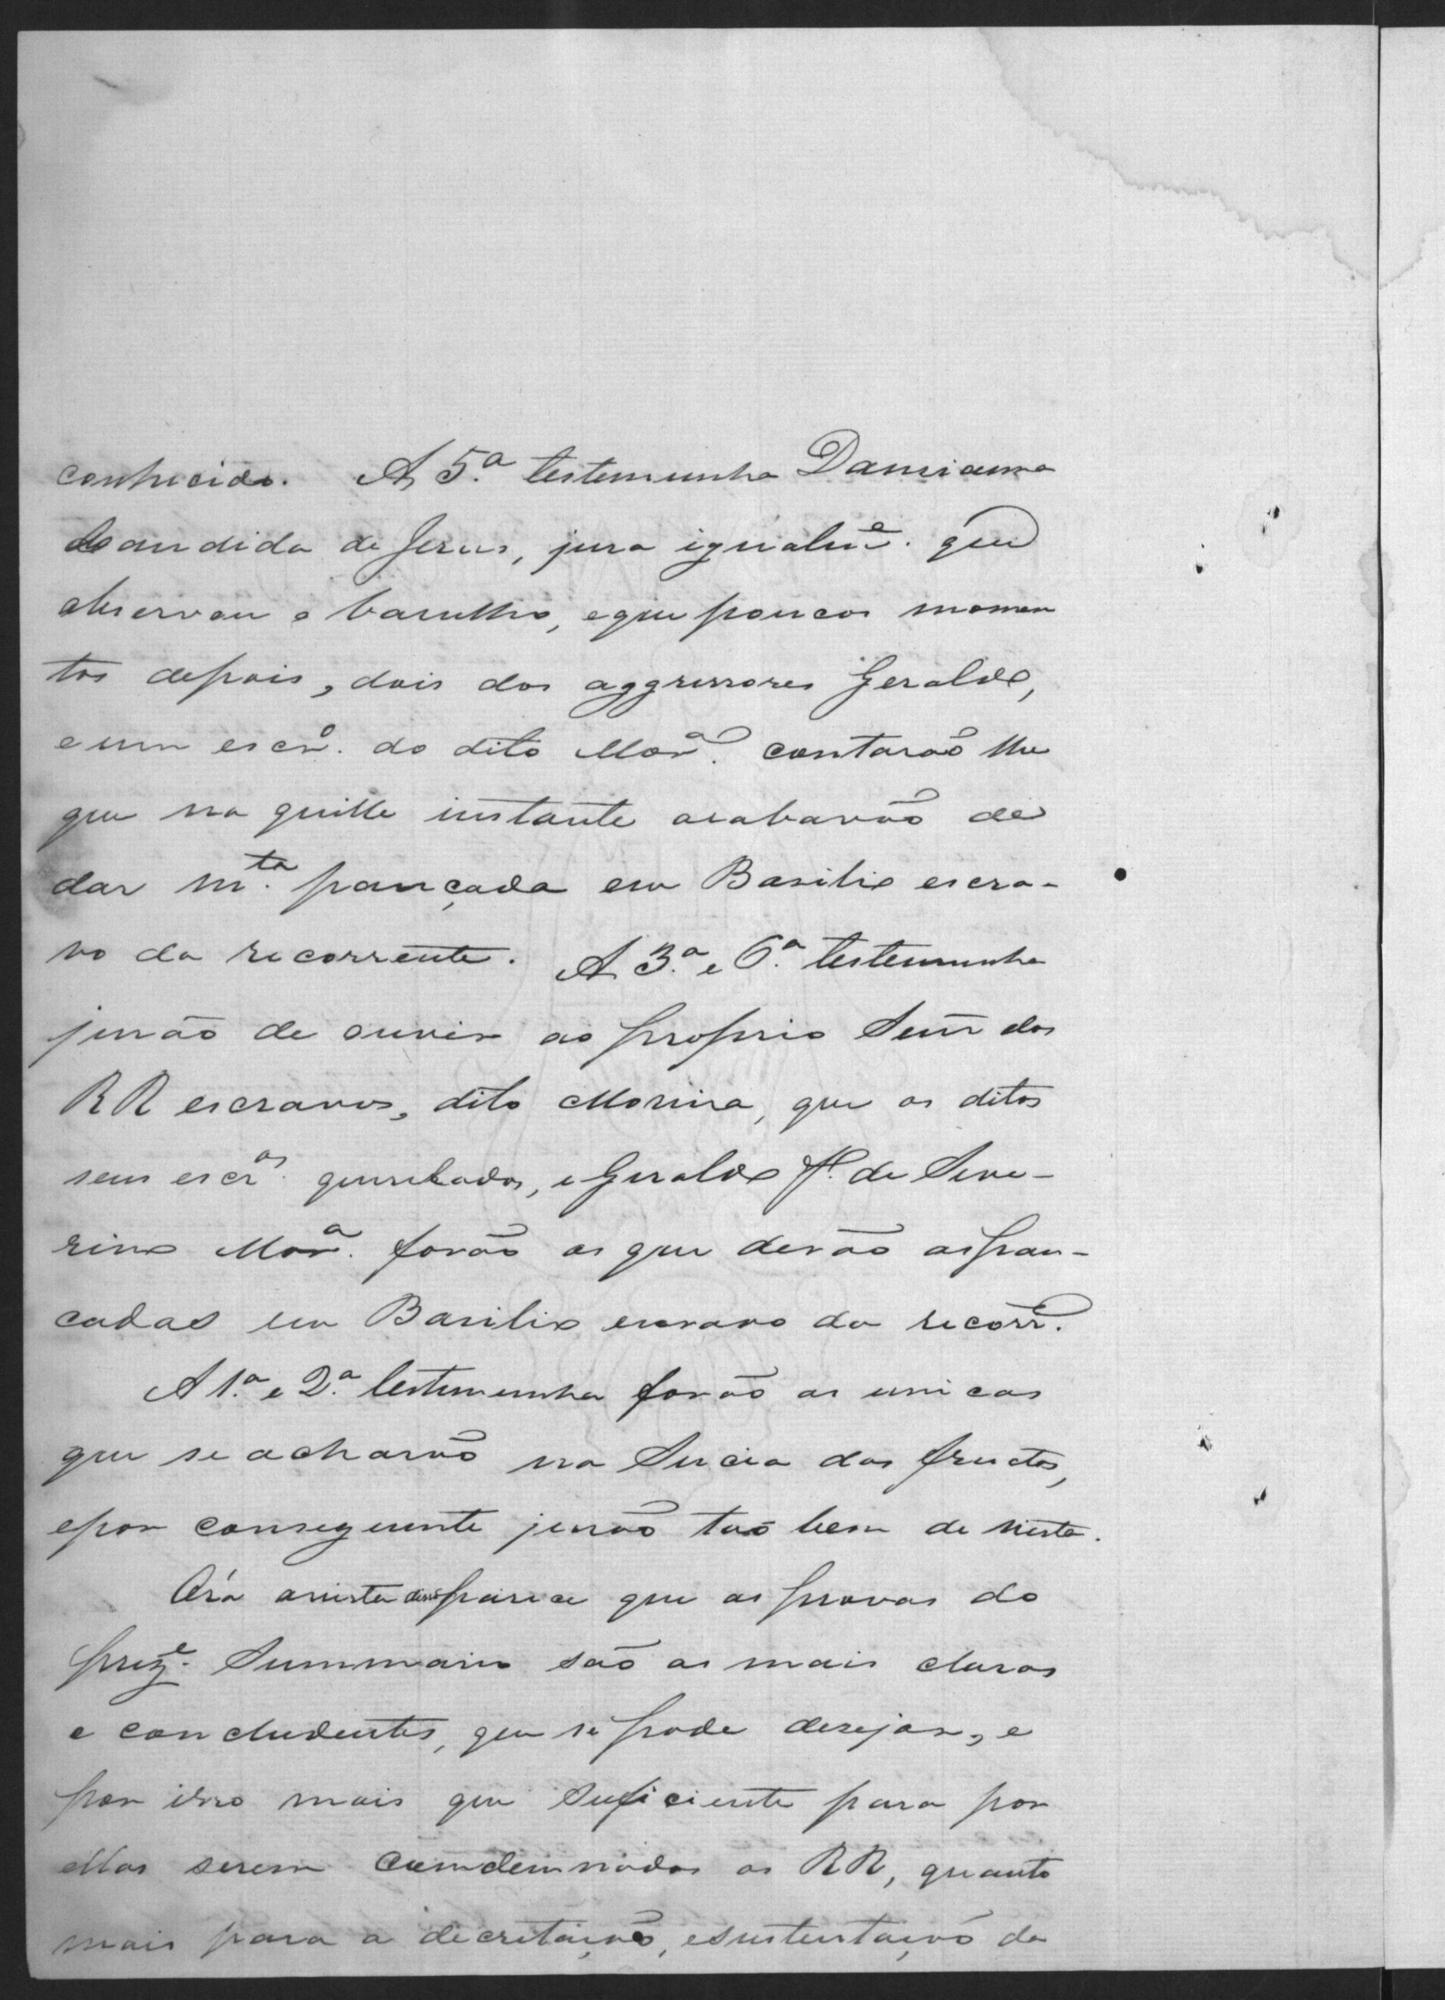 conhecido. A 5.ª testemunha Damianna
Candida de Jesus, jura igualm.e que
observou o barulho, e que poucos momen
tos depois, dois dos aggressores Geraldo,
e um escr.o do dito Mor.a contarão lhe
que na quille instante acabavão de
dar m.ta pançada em Basilio escra-
vo da recorrente. A 3.ª e 6.ª testemunha
jurão de ouvir ao proprio Senr dos
RR escravos, dito Moreira, que os ditos
seus escr.os queixados, e Geraldo f.o de Seve-
rino Mor.a forão os que derão as pan-
cadas em Basilio escravo da recorr.e
A 1.ª e 2.ª testemunha forão as unicas
que se acharão na Sucia dos fructos,
e por conseguinte jurão tão bem de vista.
Ora a vista disso parece que as provas do
prez.e Summario são as mais claras
e concludentes, que se pode desejar, e
por isso mais que suficiente para por
ellas serem cumdemnados os RR, quanto
mais para a decretação, e sustentação da